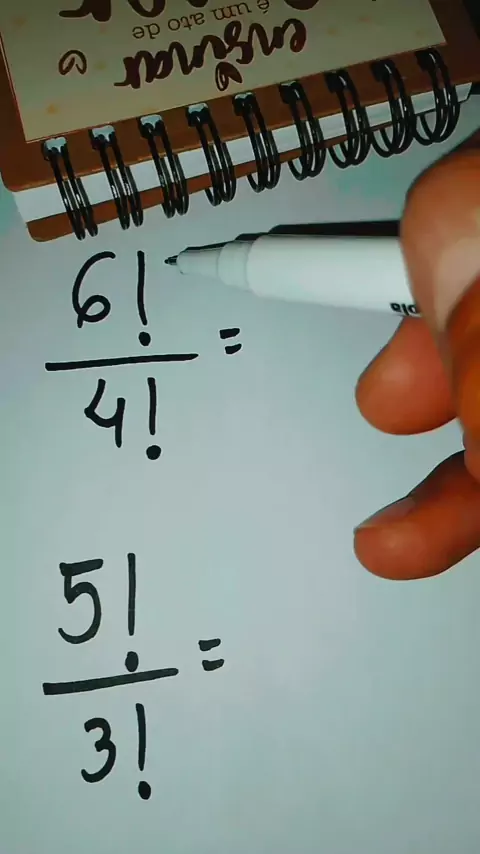 é um ato de
ensinar
6!
4!
=
5!
3!
=